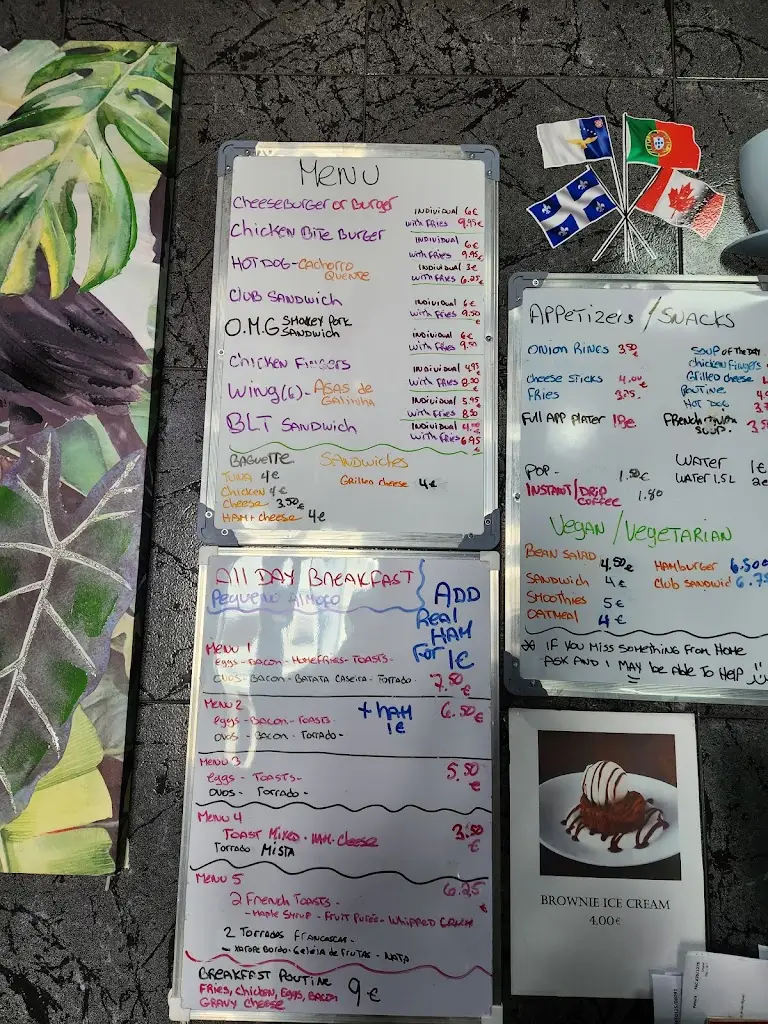 MENU
CHEESEBURGER OR BURGER INDIVIDUAL 6€
WITH FRIES 9.95€
CHICKEN BITE BURGER INDIVIDUAL 6€
WITH FRIES 9.95€
HOTDOG - CACHORRO QUENTE INDIVIDUAL 3€
WITH FRIES 6.25€
CLUB SANDWICH INDIVIDUAL 6€
WITH FRIES 9.50€
O.M.G SMOKEY PORK SANDWICH INDIVIDUAL 6€
WITH FRIES 9.50
CHICKEN FINGERS INDIVIDUAL 4.95
WITH FRIES 8.50€
WING(6) - ASAS DE GALINHA INDIVIDUAL 5.95
WITH FRIES 8.50
BLT SANDWICH INDIVIDUAL
WITH FRIES 6.95€
BAGUETTE
TUNA 4€
CHICKEN 4€
CHEESE 3.50€
HAM+CHEESE 4€
SANDWICHES
GRILLED CHEESE 4€
All DAY BREAKFAST
PEQUENO AlMOÇO
ADD
Real
HAM
For 1€
MENU 1
eggs - BACON - HOMEFRIES - TOASTS -
OVOS - BACON - BATATA CASEIRA - TORRADO - 7.50€
MENU 2
+ HAM
1€
6.50€
eggs - BACON - TOASTS -
OVOS - BACON - TORRADO -
MENU 3
5.50€
eggs - TOASTS -
OVOS - TORRADO -
MENU 4
TOAST MIXED - HAM - Cheese 3.50€
TORRADO MISTA
MENU 5 6.25€
2 FRENCH TOASTS -
- MAPLE SYRUP - FRUIT PUREE - WHIPPED CREAM
2 TORRADAS FRANCESAS -
- XAROPE BORDO - GELEIA DE FRUTAS - NATA
BREAKFAST POUTINE
FRIES, CHICKEN, EGGS, BACON
GRAVY CHEESE 9€
APPETIZERS / SNACKS
ONION RINGS 3.50
CHEESE STICKS 4.00€
FRIES
FULL APP PLATER
SOUP OF THE DAY
CHICKEN FINGERS
GRILLED CHEESE
POUTINE
HOT DOG
SOUP.
POP - 1.50€
INSTANT/DRIP COFFEE 1.80
WATER 1€
WATER 1,5L 2€
VEGAN / VEGETARIAN
BEAN SALAD 4.50€
SANDWICH 4€
SMOOTHIES 5€
OATMEAL 4€
HAMBURGER 6.50€
CLUB SANDWICH 6.75
* IF YOU MISS SOMETHING FROM HOME
ASK AND I MAY BE ABLE TO HELP
BROWNIE ICE CREAM
4.00€